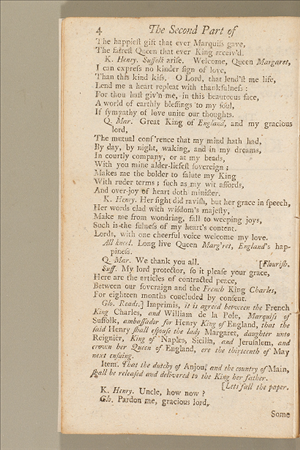 4 The Second Part of
The happiest gift that ever Marquiss gave,
The fairest Queen that ever King receiv'd.
K. Henry. Suffolk arise. Welcome, Queen Margaret,
I can express no kinder sign of love,
Than this kind kiss. O Lord, that lend'st me life,
Lend me a heart repleat with thankfulness:
For thou hast giv'n me, in this beauteous face,
A world of earthly blessings to my soul,
If sympathy of love unite our thoughts.
Q. Mar. Great King of England, and my gracious
lord,
The mutual conf'rence that my mind hath had,
By day, by night, waking, and in my dreams,
In courtly company, or at my beads,
With you mine alder-liefest sovereign;
Makes me the bolder to salute my King
With ruder terms; such as my wit affords,
And over-joy of heart doth minister.
K. Henry. Her sight did ravish, but her grace in speech,
Her words clad with wisdom's majesty,
Make me from wondring, fall to weeping joys,
Such is the fulness of my heart's content.
Lords, with one cheerful voice welcome my love.
All kneel. Long live Queen Marg'ret, England's hap-
piness.
Q. Mar. We thank you all. [Flourish.
Suff. My lord protector, so it please your grace,
Here are the articles of contracted peace,
Between our sovereign and the French King Charles,
For eighteen months concluded by consent.
Glo. Reads.] Imprimis, it is agreed between the French
King Charles, and William de la Pole, Marquiss of
Suffolk, ambassador for Henry King of England, that the
said Henry shall espouse the lady Margaret, daughter unto
Reignier, King of Naples, Sicilia, and Jerusalem, and
crown her Queen of England, ere the thirteenth of May
next ensuing.
Item. That the dutchy of Anjou, and the country of Main,
shall be released and delivered to the King her father.
[Lets fall the paper.
K. Henry. Uncle, how now?
Glo. Pardon me, gracious lord,
Some